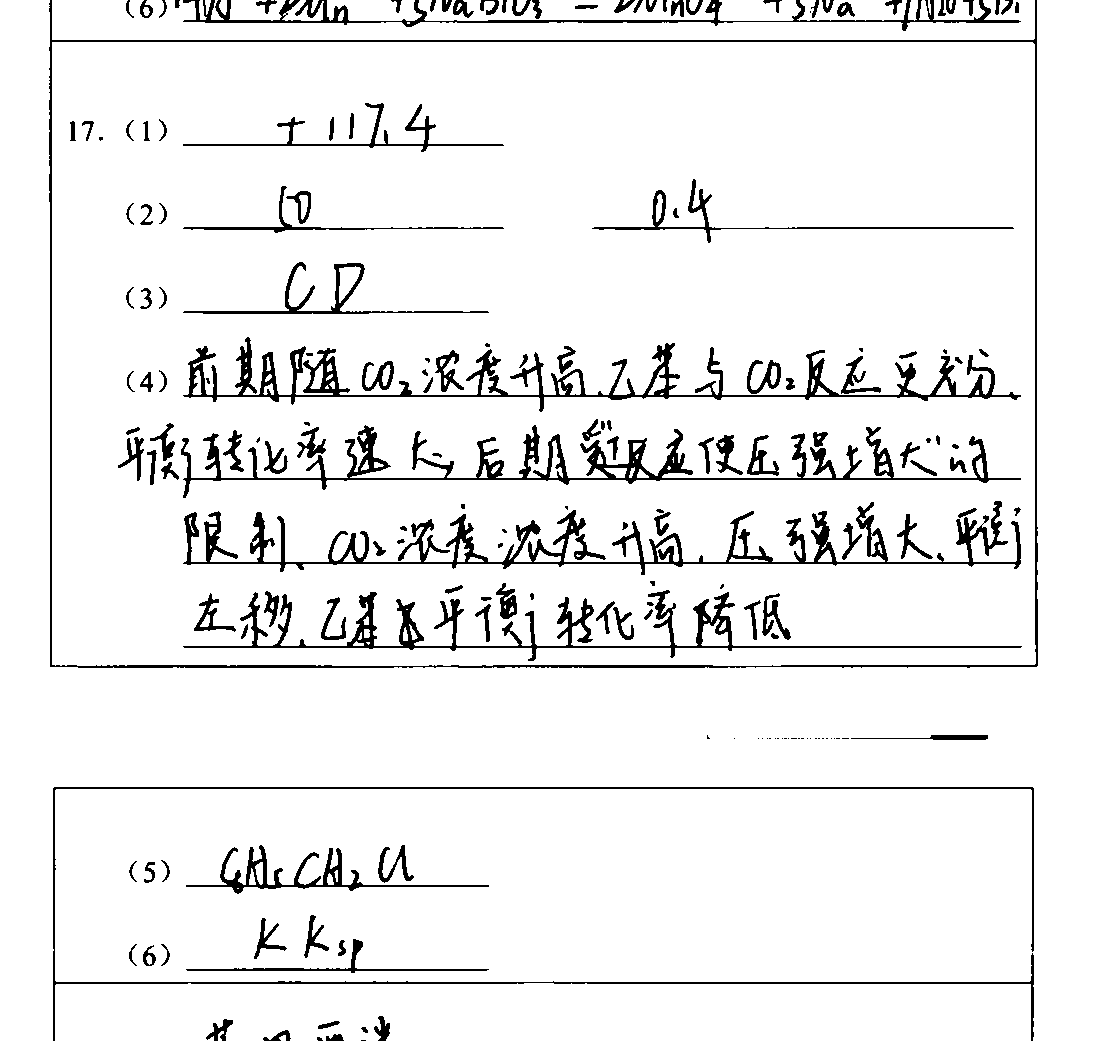 (6)
17. (1) +117.4
(2) 50 0.4
(3) CD
(4) 前期随CO₂浓度升高、乙苯与CO₂反应更充分、
平衡转化率速大,后期受反应使压强增大的
限制、CO₂浓度浓度升高、压强增大、平衡
左移、乙苯平衡转化率降低
(5) C₆H₅CH₂Cl
(6) K Ksp